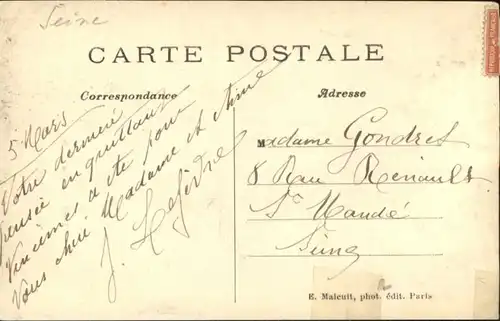 Seine
CARTE POSTALE
Correspondance
Adresse
5 Mars
Votre dernière
pensée en quittant
Vincennes a été pour
Vous chère Madame et Aimée
J. Lefèvre
Madame Gondret
8 Rue Renault
St Mandé
Seine
E. Malcuit, phot. édit. Paris